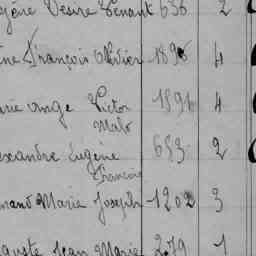 gène Désiré Tenant 636 2
ne François Olivier 1896 4
rie ange Victor 1891 4
Malo
exandre Eugène 683 2
François
mand Marie Joseph 1202 3
guste Jean Marie 279 1